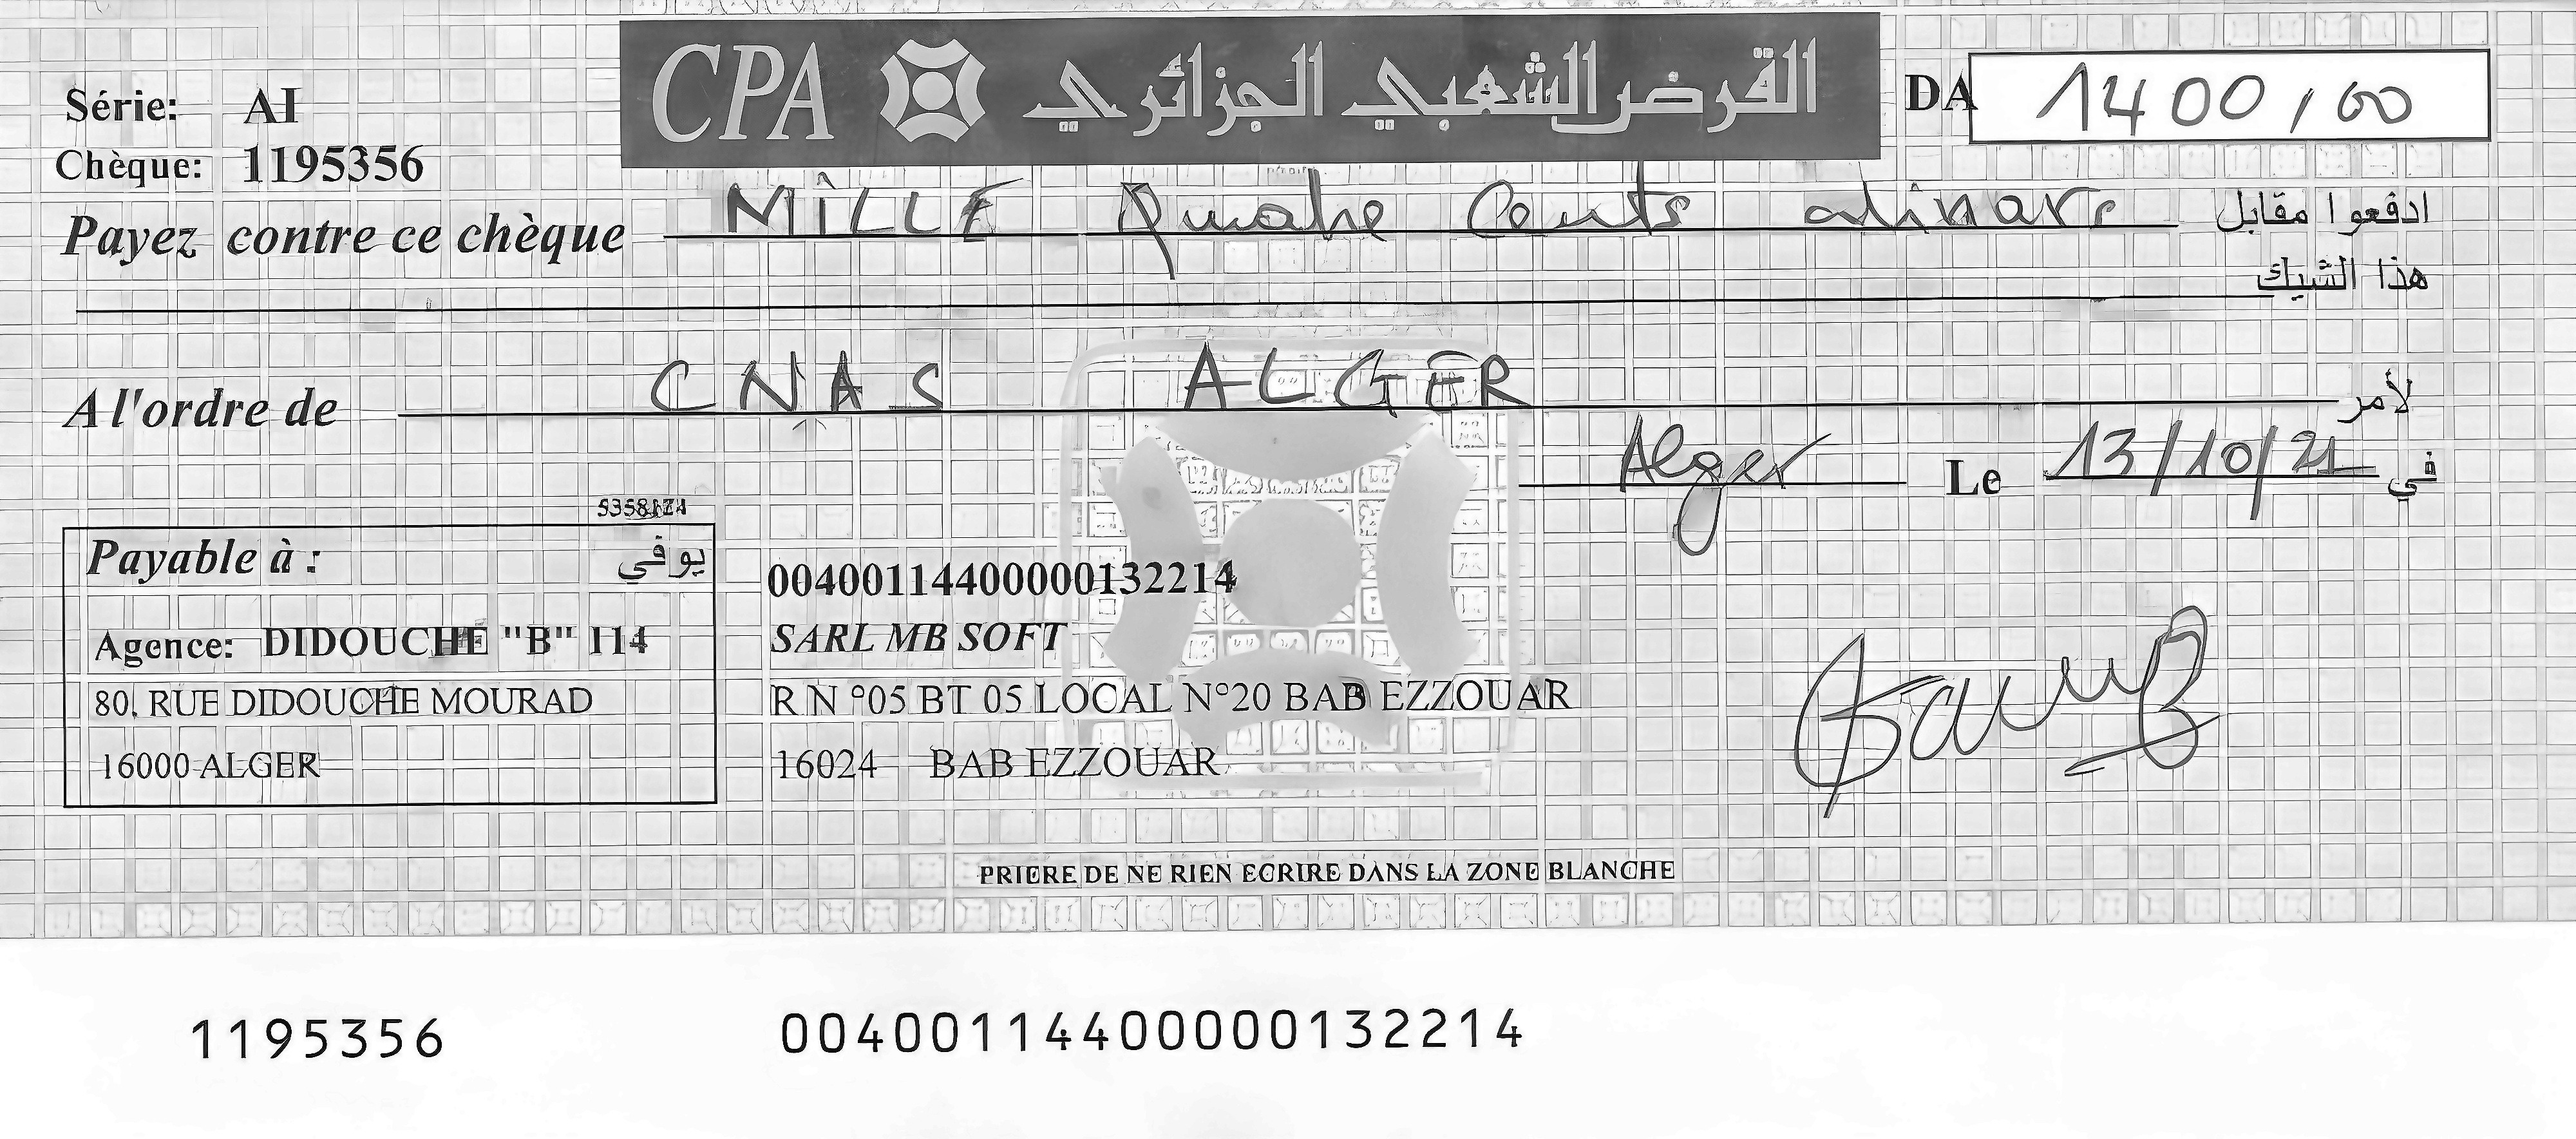 CPA القرض الشعبي الجزائري
Série: AI
DA 1400,00
Chèque: 1195356
Payez contre ce chèque MILLE quatre Cents dinars ادفعوا مقابل
هذا الشيك
A l'ordre de CNAS ALGER لأمر
Alger Le 13/10/21 في
Payable à : يوفي
Agence: DIDOUCHE "B" 114
80, RUE DIDOUCHE MOURAD
16000 ALGER
00400114400000132214
SARL MB SOFT
R N °05 BT 05 LOCAL N°20 BAB EZZOUAR
16024 BAB EZZOUAR
PRIERE DE NE RIEN ECRIRE DANS LA ZONE BLANCHE
1195356 00400114400000132214